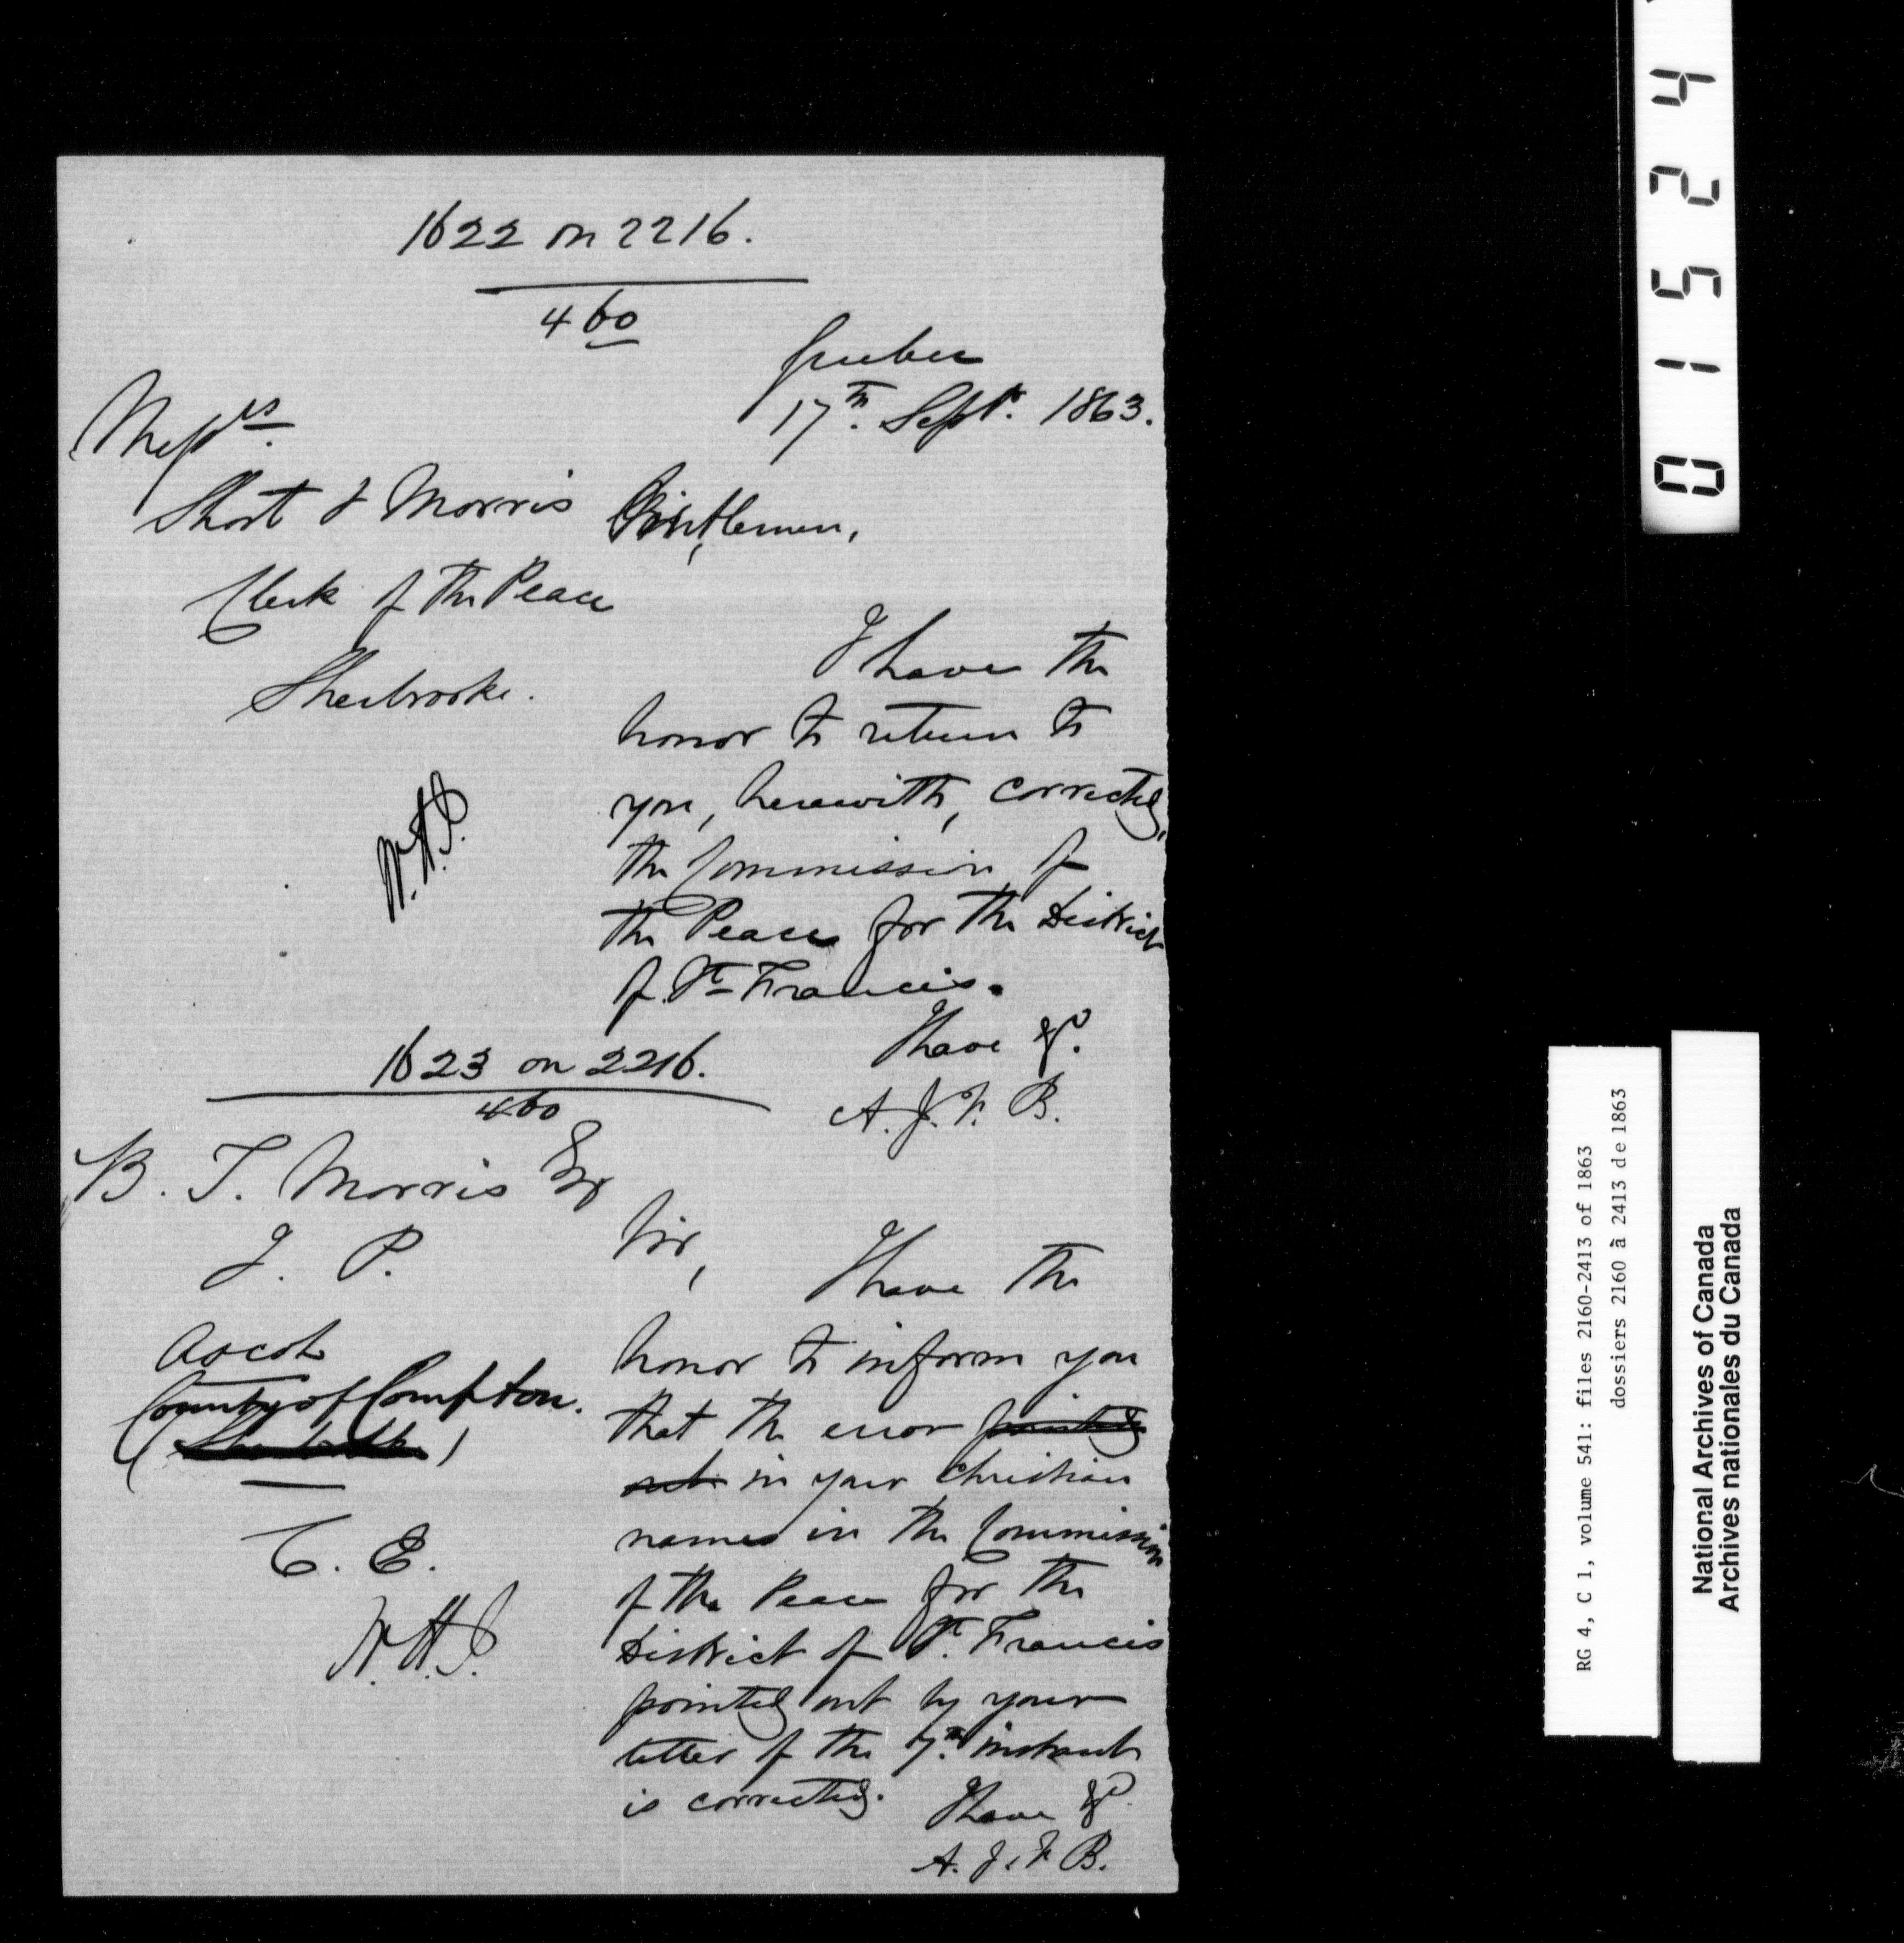 1622 on 2216.
460
Quebec
17th. Septr. 1863.
Messrs.
Short & Morris
Clerk of the Peace
Sherbrooke.
Gentlemen,
I have the
honor to return to
you, herewith, corrected,
the Commission of
the Peace for the District
of St. Francis.
I have &c.
A. J. F. B.
W. H. J.
1623 on 2216.
460
B. T. Morris Esqr
J. P.
Ascot
County of Compton.
(Sherbrooke)
C. E.
W. H. J.
Sir,
I have the
honor to inform you
that the error pointed
out in your Christian
names in the Commission
of the Peace for the
District of St. Francis
pointed out by your
letter of the 7th. instant
is corrected.
I have &c
A. J. F. B.
01524
RG 4, C 1, volume 541: files 2160-2413 of 1863
dossiers 2160 à 2413 de 1863
National Archives of Canada
Archives nationales du Canada